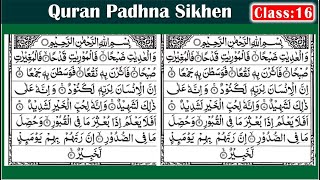 Quran Padhna Sikhen
Class:16
بِسْمِ اللّٰهِ الرَّحْمٰنِ الرَّحِيْمِ
وَالْعٰدِيٰتِ ضَبْحًا ۙ فَالْمُوْرِيٰتِ قَدْحًا ۙ فَالْمُغِيْرٰتِ
صُبْحًا ۙ فَاَثَرْنَ بِهٖ نَقْعًا ۙ فَوَسَطْنَ بِهٖ جَمْعًا ۙ
اِنَّ الْاِنْسَانَ لِرَبِّهٖ لَكَنُوْدٌ ۚ وَاِنَّهٗ عَلٰى
ذٰلِكَ لَشَهِيْدٌ ۚ وَاِنَّهٗ لِحُبِّ الْخَيْرِ لَشَدِيْدٌ ؕ
اَفَلَا يَعْلَمُ اِذَا بُعْثِرَ مَا فِى الْقُبُوْرِ ۙ وَحُصِّلَ
مَا فِى الصُّدُوْرِ ۙ اِنَّ رَبَّهُمْ بِهِمْ يَوْمَئِذٍ
لَّخَبِيْرٌ
بِسْمِ اللّٰهِ الرَّحْمٰنِ الرَّحِيْمِ
وَالْعٰدِيٰتِ ضَبْحًا ۙ فَالْمُوْرِيٰتِ قَدْحًا ۙ فَالْمُغِيْرٰتِ
صُبْحًا ۙ فَاَثَرْنَ بِهٖ نَقْعًا ۙ فَوَسَطْنَ بِهٖ جَمْعًا ۙ
اِنَّ الْاِنْسَانَ لِرَبِّهٖ لَكَنُوْدٌ ۚ وَاِنَّهٗ عَلٰى
ذٰلِكَ لَشَهِيْدٌ ۚ وَاِنَّهٗ لِحُبِّ الْخَيْرِ لَشَدِيْدٌ ؕ
اَفَلَا يَعْلَمُ اِذَا بُعْثِرَ مَا فِى الْقُبُوْرِ ۙ وَحُصِّلَ
مَا فِى الصُّدُوْرِ ۙ اِنَّ رَبَّهُمْ بِهِمْ يَوْمَئِذٍ
لَّخَبِيْرٌ